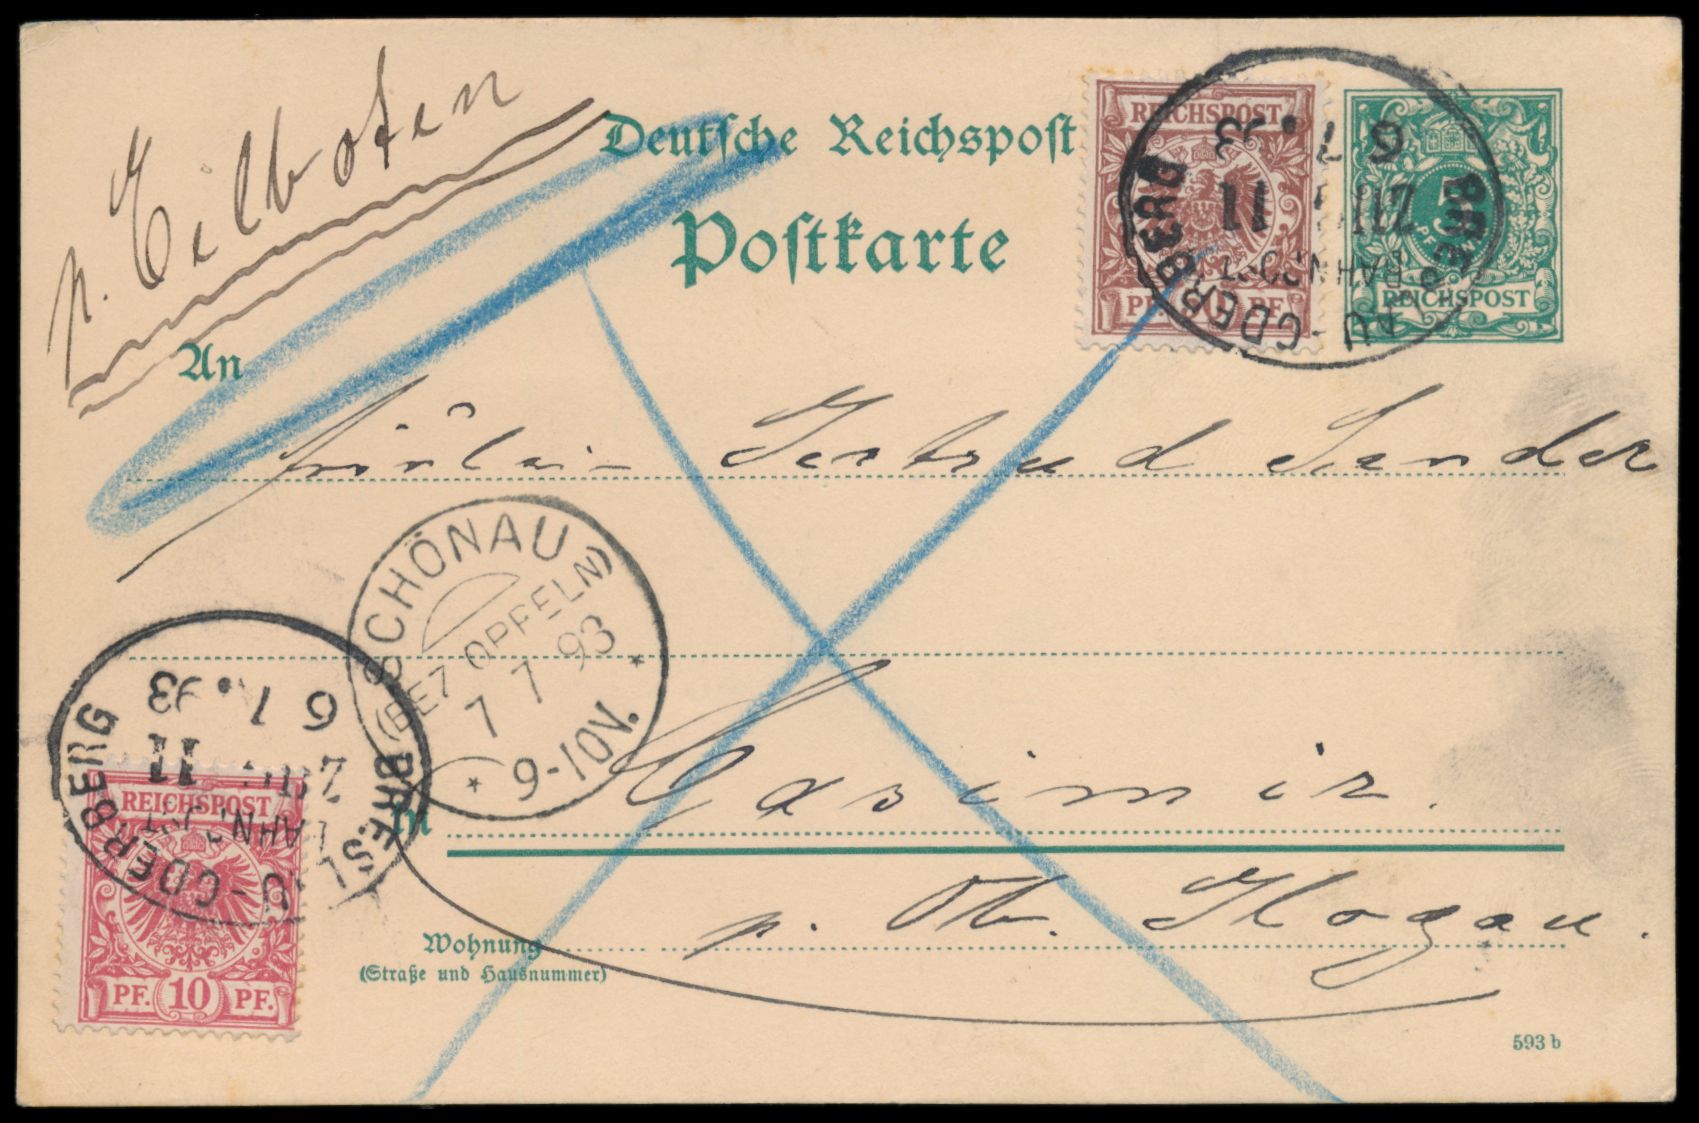 p. Eilboten
Deutsche Reichspost
Postkarte
REICHSPOST
PF. PF.
5
REICHSPOST
BRESLAU - ODERBERG
BAHNPOST
ZUG 11
6 7. 93
An
Fräulein Gertrud Sander
SCHÖNAU
(BEZ. OPPELN)
7 7 93
9-10V.
BRESLAU - ODERBERG
BAHNPOST
ZUG 11
6 7. 93
REICHSPOST
PF. 10 PF.
In
Casimir.
p. Ob. Glogau.
Wohnung
(Straße und Hausnummer)
593 b